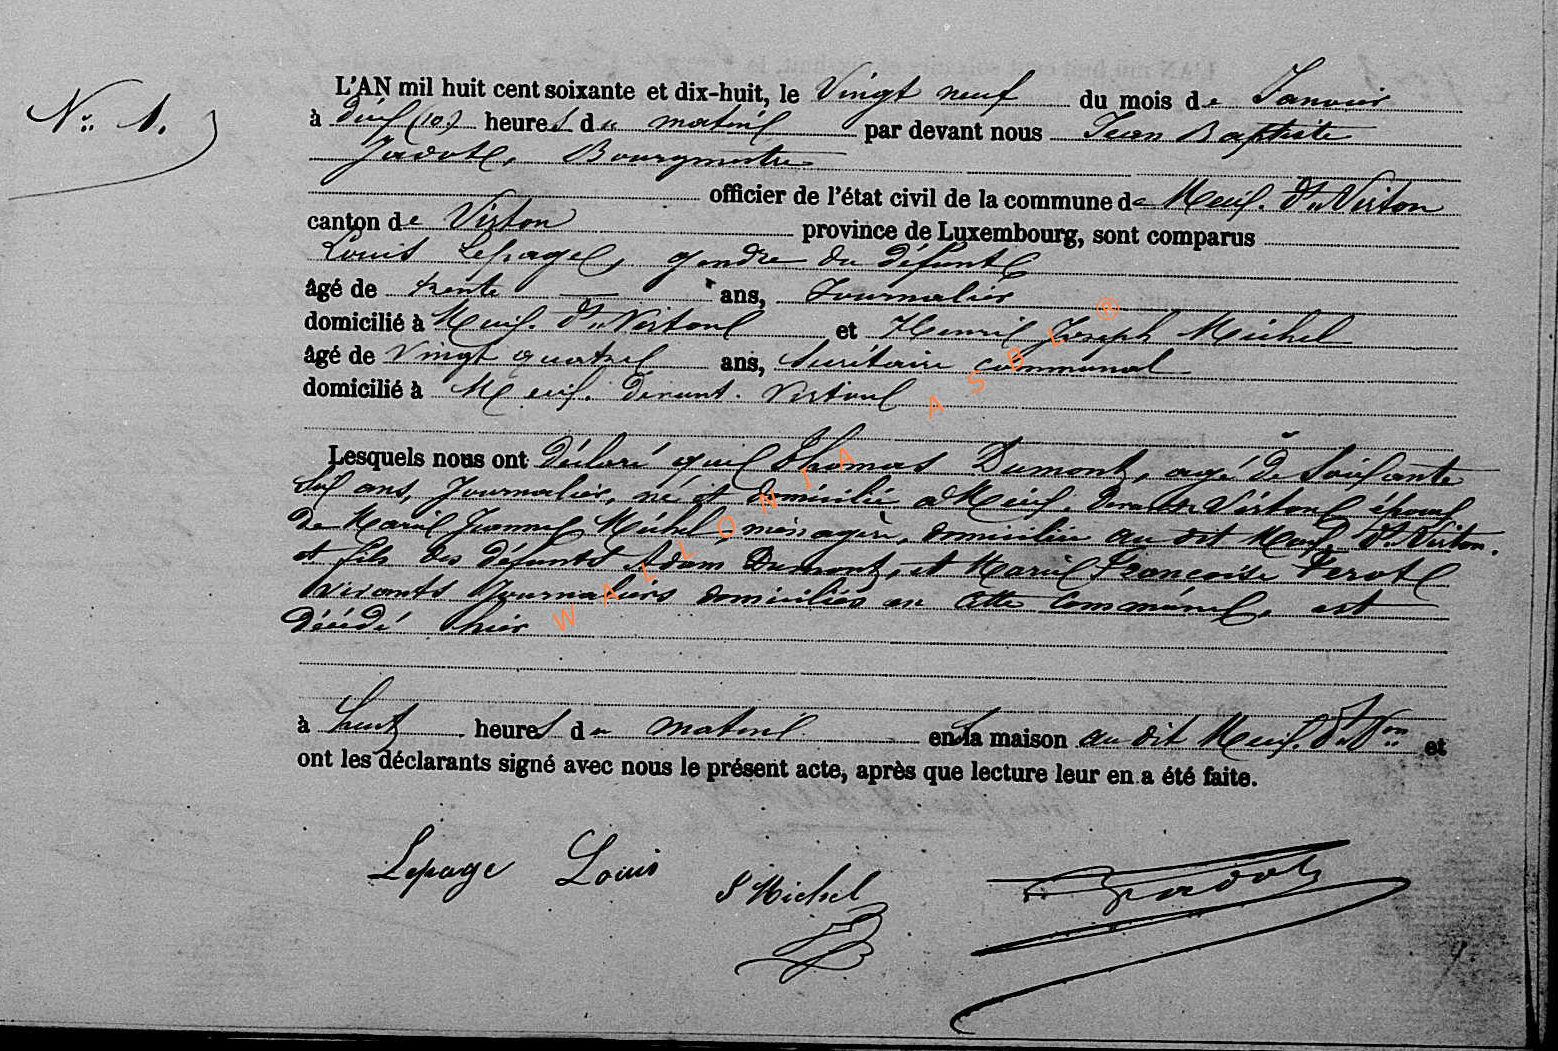 N° 1.
L'AN mil huit cent soixante et dix-huit, le Vingt neuf du mois de Janvier
à dix (10) heures du matin par devant nous Jean Baptiste
Jadot, Bourgmestre
officier de l'état civil de la commune de Meix. dt Virton
canton de Virton province de Luxembourg, sont comparus
Louis Lepage, gendre du défunt
âgé de trente ans, Journalier
domicilié à Meix. dt Virton et Henri Joseph Michel
âgé de Vingt quatre ans, Secrétaire communal
domicilié à Meix. devant. Virton
Lesquels nous ont déclaré que Thomas Dumont, agé de soixante
ans, Journalier, né et domicilié à Meix. devant Virton, époux
de Marie Jeanne Michel, ménagère, domiciliée au dit Meix dt Virton.
et fils des défunts Adam Dumont, et Marie Françoise Perot
vivants Journaliers domiciliés en cette Commune, est
décédé hier
à huit heures du matin en la maison au dit Meix. dt Von et
ont les déclarants signé avec nous le présent acte, après que lecture leur en a été faite.
Lepage Louis Michel Jadot
WALLONIA ASBL ®